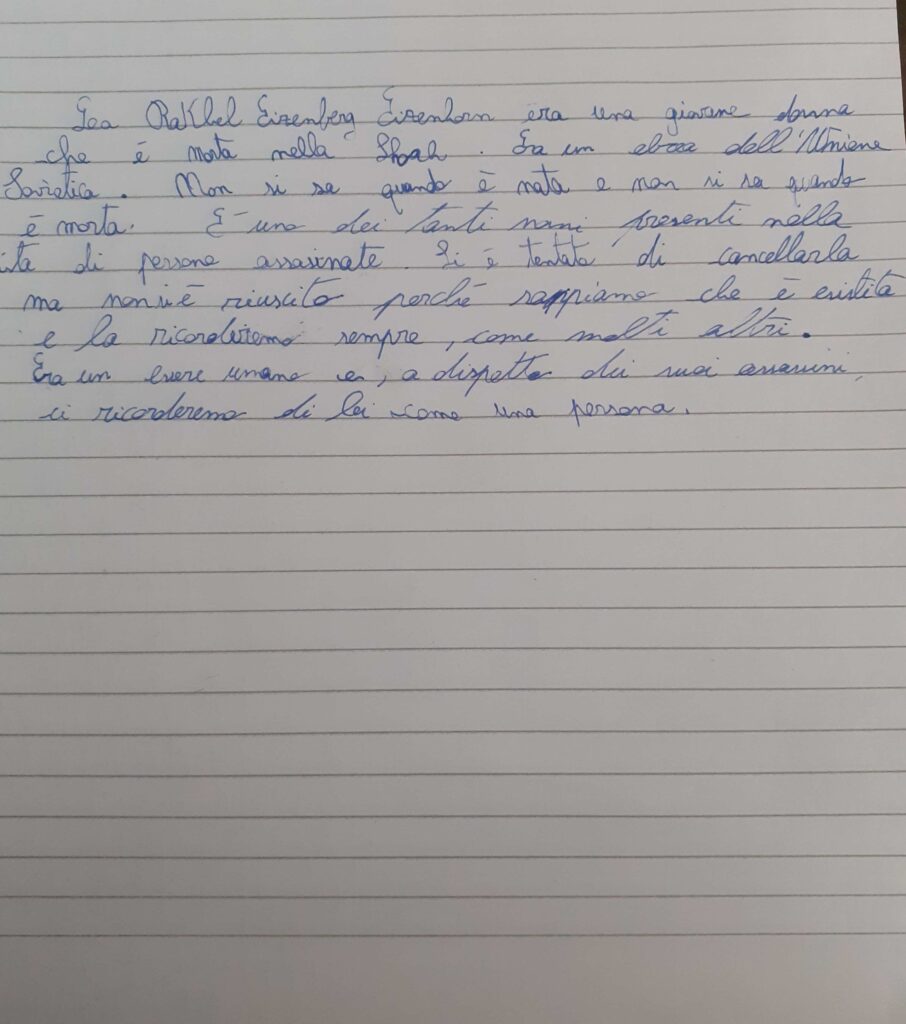 Lea Rakhel Eizenberg Eizenhorn era una giovane donna
che è morta nella Shoah. Era un ebrea dell'Unione
Sovietica. Non si sa quando è nata e non si sa quando
è morta. E' uno dei tanti nomi presenti nella
ista di persone assasinate. Si è tentato di cancellarla
ma non si è riuscito perché sappiamo che è esistita
e la ricorderemo sempre, come molti altri.
Era un essere umano e, a dispetto dei suoi assassini,
ci ricorderemo di lei come una persona.